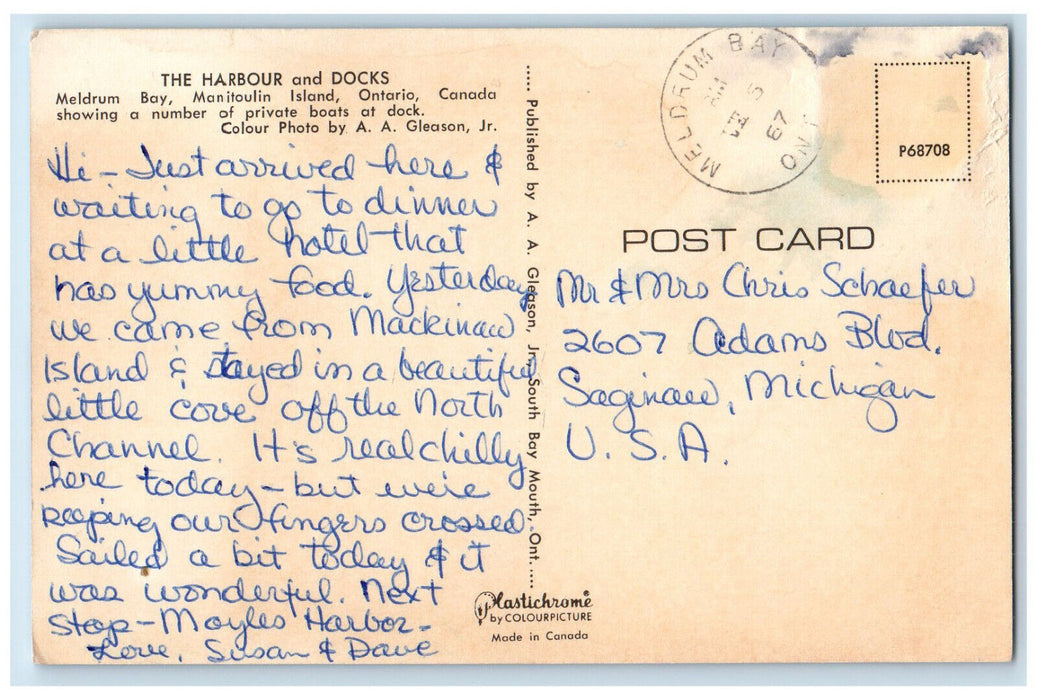 THE HARBOUR and DOCKS
Meldrum Bay, Manitoulin Island, Ontario, Canada
showing a number of private boats at dock.
Colour Photo by A. A. Gleason, Jr.
Hi - Just arrived here &
waiting to go to dinner
at a little hotel that
has yummy food. Yesterday
we came from Mackinaw
Island & stayed in a beautiful
little cove off the North
Channel. It's real chilly
here today - but we're
keeping our fingers crossed.
Sailed a bit today & it
was wonderful. Next
stop - Moyles Harbor -
Love, Susan & Dave
.... Published by A. A. Gleason, Jr., South Bay Mouth, Ont. ....
Plastichrome®
by COLOURPICTURE
Made in Canada
MELDRUM BAY
ONT
AM
5
67
P68708
POST CARD
Mr & Mrs Chris Schaefer
2607 Adams Blvd.
Saginaw, Michigan
U. S. A.